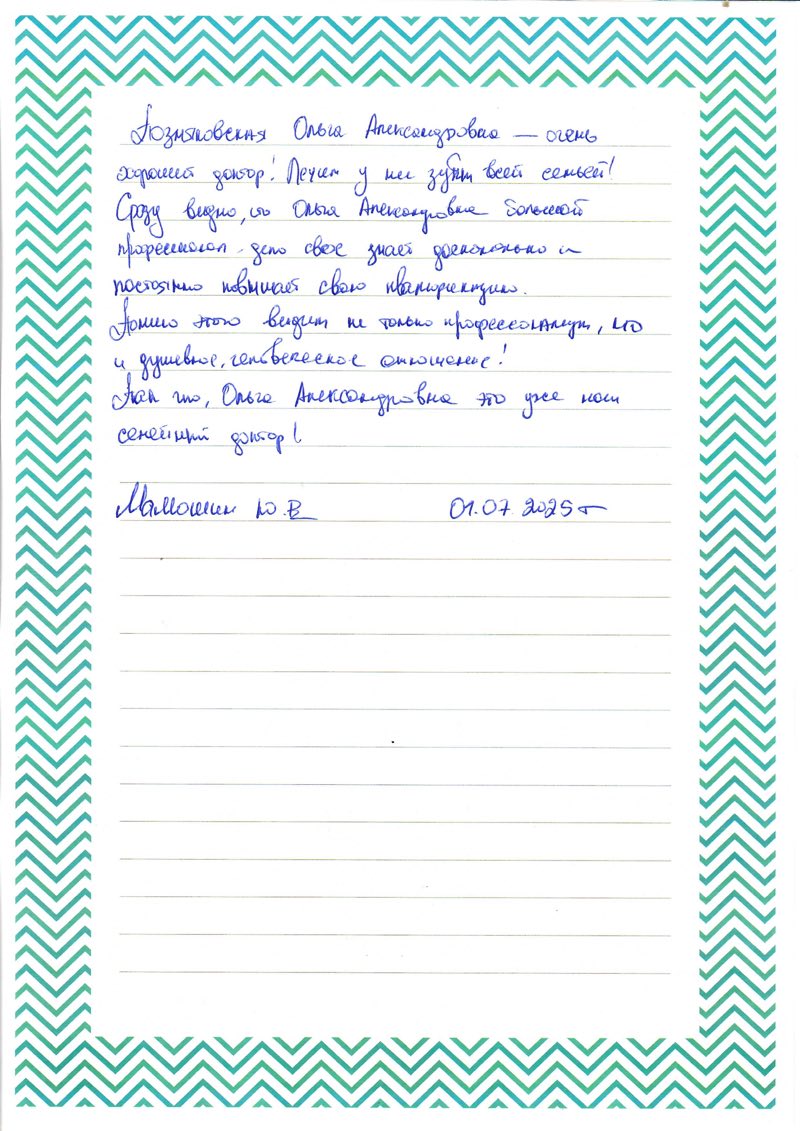 Позняковская Ольга Александровна — очень
хороший доктор! Лечим у неё зубы всей семьей!
Сразу видно, что Ольга Александровна большой
профессионал - дело своё знает досконально и
постоянно повышает свою квалификацию.
Помимо этого видим не только профессионализм, но
и душевное, человеческое отношение!
Так что, Ольга Александровна это уже наш
семейный доктор!
Мамошин Ю.В 01.07.2025 г